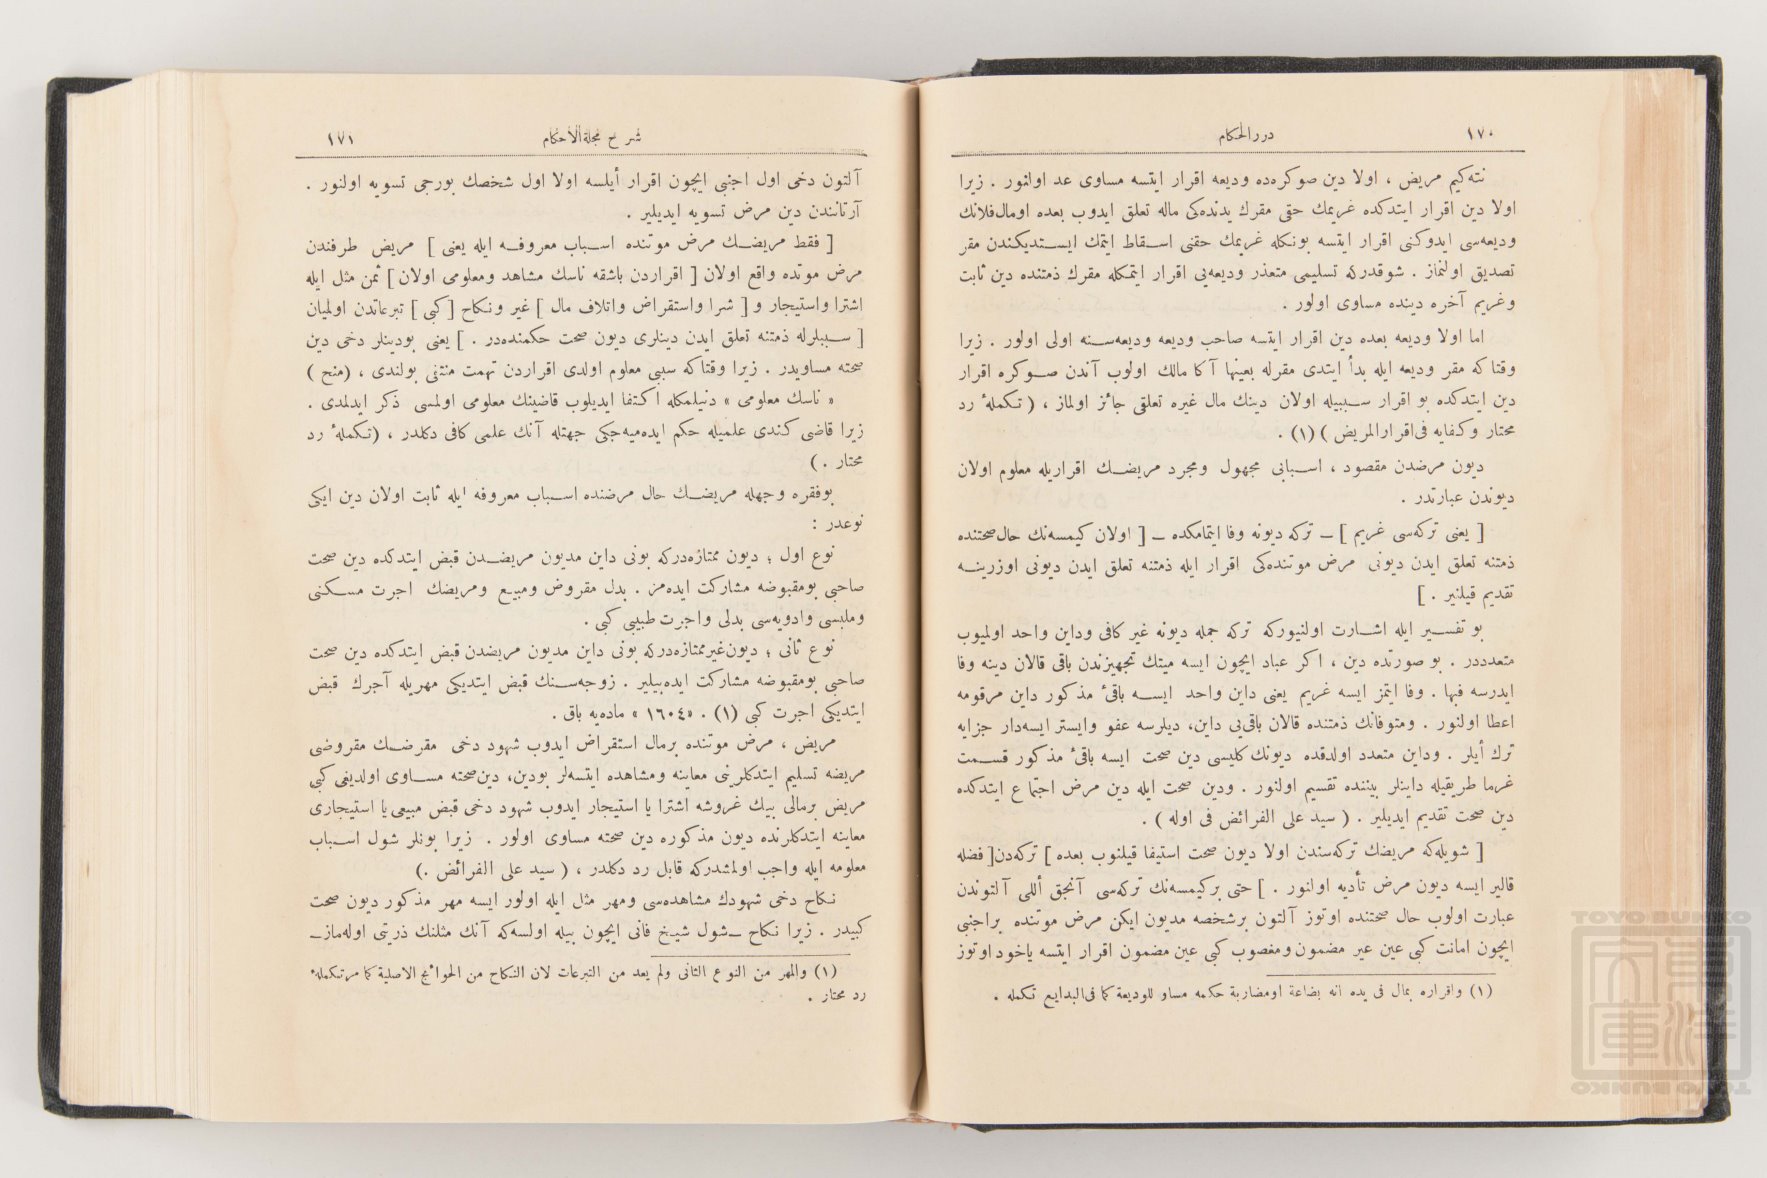 ١٧٠
دررالحكام
نته‌كيم مريض ، اولا دين صوكره‌ده وديعه اقرار ايتسه مساوى عد اولنور . زيرا
اولا دين اقرار ايتدكده غريمك حقى مقرك يدنده‌كى ماله تعلق ايدوب بعده اومال‌فلانك
وديعه‌سى ايدوكنى اقرار ايتسه بونكله غريمك حقنى اسـقاط ايتمك ايسـتديكندن مقر
تصديق اولنماز . شوقدركه تسليمى متعذر وديعه‌يى اقرار ايتمكله مقرك ذمتنده دين ثابت
وغريم آخره دينده مساوى اولور .
اما اولا وديعه بعده دين اقرار ايتسه صاحب وديعه وديعه‌سـنه اولى اولور . زيرا
وقتا كه مقر وديعه ايله بدأ ايتدى مقرله بعينها آ كا مالك اولوب آندن صـوكره اقرار
دين ايتدكده بو اقرار سـببيله اولان دينك مال غيره تعلقى جائز اولماز ، ( تكملهٔ رد
محتار وكفايه فى‌اقرارالمريض ) (١) .
ديون مرضدن مقصود ، اسـبابى مجهول ومجرد مريضـك اقراريله معلوم اولان
ديوندن عبارتدر .
[ يعنى تركه‌سى غريم ] ـ تركه ديونه وفا ايتمامكده ـ [ اولان كيمسه‌نك حال‌صحتنده
ذمتنه تعلق ايدن ديونى مرض موتنده‌كى اقرار ايله ذمتنه تعلق ايدن ديونى اوزرينـه
تقديم قيلنير . ]
بو تفسـير ايله اشـارت اولنيوركه تركه جمله ديونه غير كافى وداين واحد اولميوب
متعدددر . بو صورتده دين ، اكر عباد ايچون ايسه ميتك تجهيزندن باقى قالان دينه وفا
ايدرسه فبها . وفا ايتمز ايسه غريم يعنى داين واحد ايسـه باقئ مذكور داين مرقومه
اعطا اولنور . ومتوفانك ذمتنده قالان باقى‌يى داين، ديلرسه عفو وايستر ايسه‌دار جزايه
ترك أيلر . وداين متعدد اولدقده ديونك كليسى دين صحت ايسه باقئ مذكور قسـمت
غرما طريقيله داينلر بيننده تقسيم اولنور . ودين صحت ايله دين مرض اجتماع ايتدكده
دين صحت تقديم ايديلير . ( سيد على الفرائض فى اوله ) .
[ شويله‌كه مريضك تركه‌سندن اولا ديون صحت استيفا قيلنوب بعده ] تركه‌دن[ فضله
قالير ايسه ديون مرض تأديه اولنور . ] حتى بركيمسه‌نك تركه‌سى آنجق أللى آلتوندن
عبارت اولوب حال صحتنده اوتوز آلتون برشخصه مديون ايكن مرض موتنده براجنبى
ايچون امانت كبى عين غير مضمون ومغصوب كبى عين مضمون اقرار ايتسه ياخود اوتوز
(١) واقراره بمال فى يده انه بضاعة اومضاربة حكمه مساو للوديعة كما فى‌البدايع تكمله .
شرح مجلةالأحكام
١٧١
آلتون دخى اول اجنبى ايچون اقرار أيلسه اولا اول شخصك بورجى تسويه اولنور .
آرتانندن دين مرض تسويه ايديلير .
[ فقط مريضـك مرض موتنده اسـباب معروفـه ايله يعنى ] مريض طرفندن
مرض موتده واقع اولان [ اقراردن باشقه ناسك مشاهد ومعلومى اولان ] ثمن مثل ايله
اشترا واستيجار و [ شرا واستقراض واتلاف مال ] غير ونكاح [كبى ] تبرعاتدن اولميان
[ سـببلرله ذمتنه تعلق ايدن دينلرى ديون صحت حكمنده‌در . ] يعنى بودينلر دخى دين
صحته مساويدر . زيرا وقتاكه سببى معلوم اولدى اقراردن تهمت منتفى بولندى ، (منح )
« ناسك معلومى » دنيلمكله اكتفا ايديلوب قاضينك معلومى اولمسى ذكر ايدلمدى .
زيرا قاضى كندى علميله حكم ايده‌ميه‌جكى جهتله آنك علمى كافى دكلدر ، (تكملهٔ رد
محتار . )
بوفقره وجهله مريضـك حال مرضنده اسـباب معروفه ايله ثابت اولان دين ايكى
نوعدر :
نوع اول ؛ ديون ممتازه‌دركه بونى داين مديون مريضـدن قبض ايتدكده دين صحت
صاحبى بومقبوضه مشاركت ايده‌مز . بدل مقروض ومبيع ومريضك اجرت مسـكنى
وملبسى وادويه‌سى بدلى واجرت طبيبى كبى .
نوع ثانى ؛ ديون‌غيرممتازه‌دركه بونى داين مديون مريضدن قبض ايتدكده دين صحت
صاحبى بومقبوضه مشاركت ايده‌بيلير . زوجه‌سـنك قبض ايتديكى مهريله آجرك قبض
ايتديكى اجرت كبى (١) . «١٦٠٤ » ماده‌يه باق .
مريض ، مرض موتنده برمال استقراض ايدوب شهود دخى مقرضـك مقروضى
مريضه تسليم ايتدكلرنى معاينه ومشاهده ايتسه‌لر بودين، دين‌صحته مسـاوى اولديغى كبى
مريض برمالى بيك غروشه اشترا يا استيجار ايدوب شهود دخى قبض مبيعى يا استيجارى
معاينه ايتدكلرنده ديون مذكوره دين صحته مساوى اولور . زيرا بونلر شول اسـباب
معلومه ايله واجب اولمشدركه قابل رد دكلدر ، ( سيد على الفرائض .)
نكاح دخى شهودك مشاهده‌سى ومهر مثل ايله اولور ايسه مهر مذكور ديون صحت
كبيدر . زيرا نكاح ـ شول شيخ فانى ايچون بيله اولسه‌كه آنك مثلنك ذريتى اوله‌ماز ـ
(١) والمهر من النوع الثانى ولم يعد من التبرعات لان النكاح من الحوائج الاصلية كما مرتكملهٔ
رد محتار .
TOYO BUNKO
TOYO BUNKO